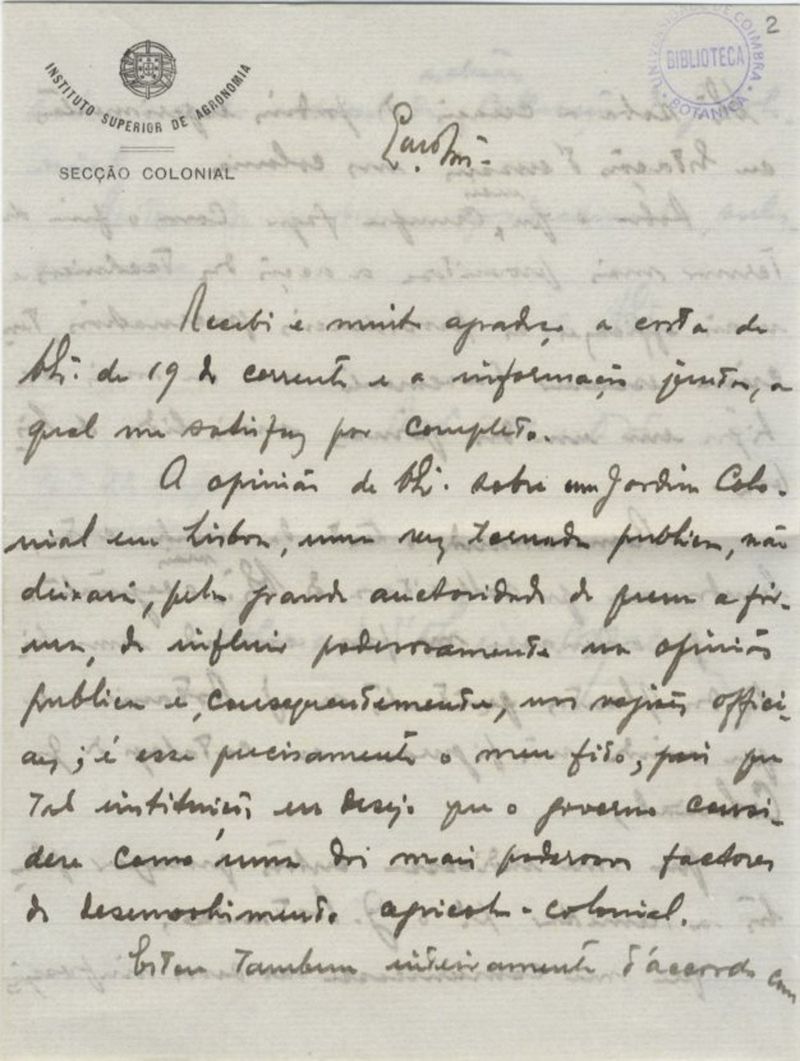 2
UNIVERSIDADE DE COIMBRA
BIBLIOTECA
BOTANICA
INSTITUTO SUPERIOR DE AGRONOMIA
SECÇÃO COLONIAL
Recebi e muito agradeço a carta de
de 19 do corrente e a informação junta, a
qual me satisfaz por completo.
A opinião de sobre um Jardim Colo-
nial em Lisboa, uma vez tornada publica, não
deixará, pela grande auctoridade de quem a fir-
ma, de influir poderosamente na opinião
publica e, consequentemente, nas regiões offici-
aes; é esse precisamente o meu fito, pois que
tal instituição eu desejo que o governo consi-
dere como uma dos mais poderosos factores
do desenvolvimento agricola-colonial.
Estou tambem inteiramente d'accordo com